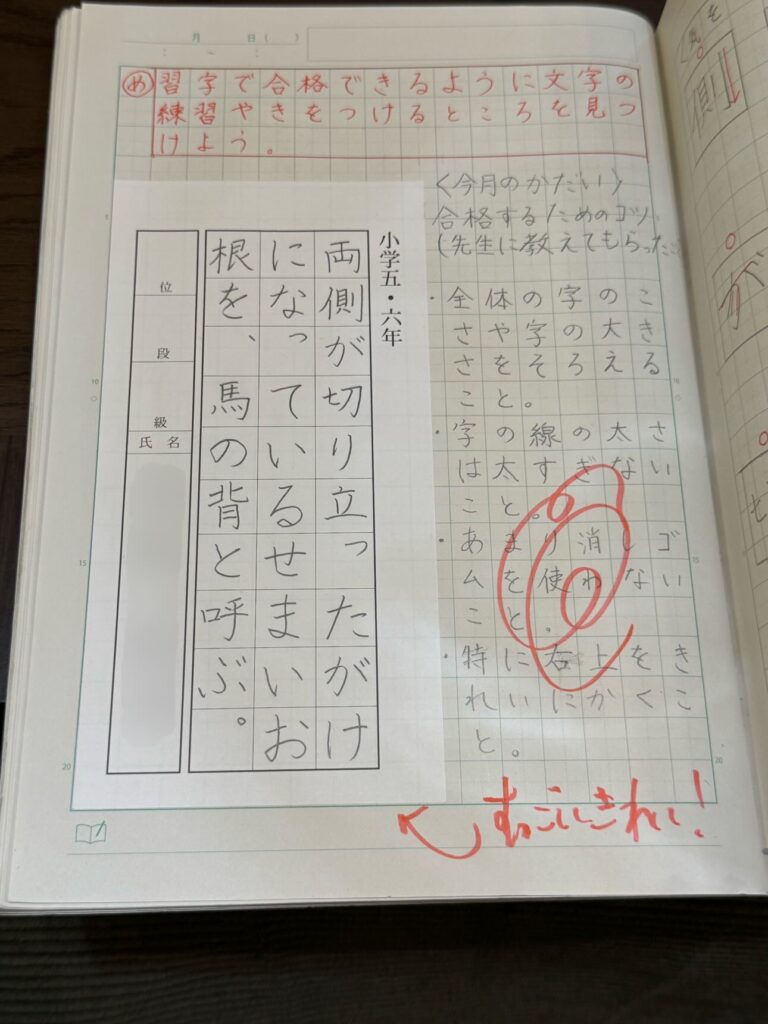 月 日( )
: ~ :
め 習字で合格できるように文字の
練習でやきをつけるところを見つ
けよう。
<今月のかだい>
合格するためのコツ
(先生に教えてもらったこ
・全体の字のこ
さや字の大き
さをそろえる
こと。
・字の線の太さ
は太すぎない
こと。
・あまり消しゴ
ムを使わない
こと。
・特に右上をき
れいにかくこ
と。
小学五・六年
両側が切り立ったがけ
になっているせまいお
根を、馬の背と呼ぶ。
位
段
級
氏名
すっごいきれい!
側
が
も
5
10
15
20
10
15
20